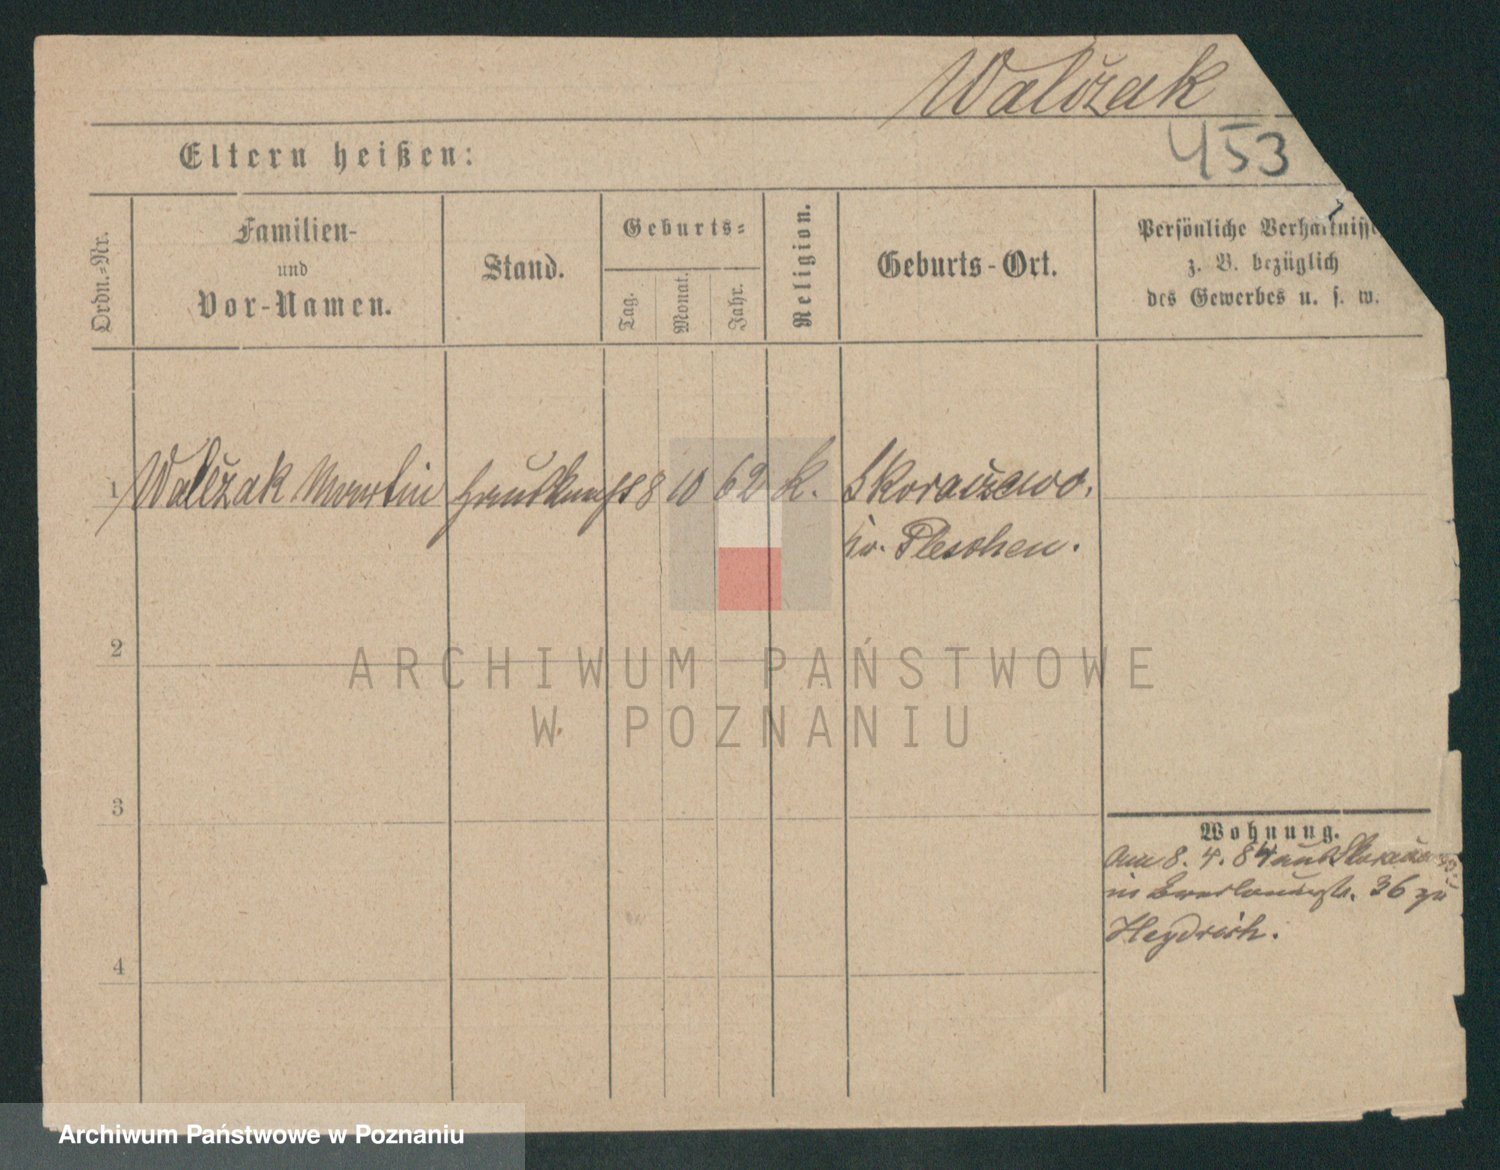 Walczak
453
Eltern heißen:
Ordn.-Nr.
Familien-
und
Vor-Namen.
Stand.
Geburts-
Tag.
Monat.
Jahr.
Religion.
Geburts-Ort.
Persönliche Verhältnisse
z. B. bezüglich
des Gewerbes u. s. w.
1 Walczak Martin Hausknecht 8 10 62 k. Skoraczewo.
Kr. Pleschen.
2
3
4
Wohnung.
Am 8. 4. 84 aus
in Breslauerstr. 36 zu
Heydrich.
ARCHIWUM PAŃSTWOWE
W POZNANIU
Archiwum Państwowe w Poznaniu